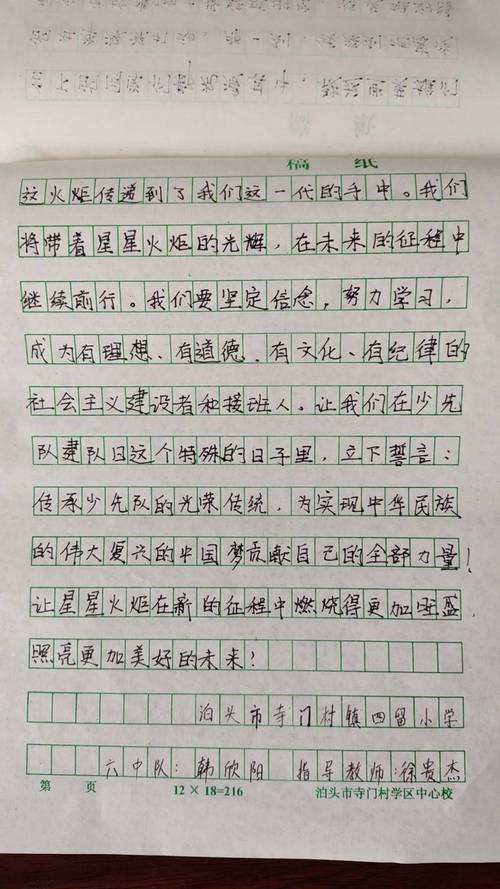 稿 纸
这火炬传递到了我们这一代的手中。我们
将带着星星火炬的光辉，在未来的征程中
继续前行。我们要坚定信念，努力学习，
成为有理想、有道德、有文化、有纪律的
社会主义建设者和接班人。让我们在少先
队建队日这个特殊的日子里，立下誓言：
传承少先队的光荣传统，为实现中华民族
的伟大复兴的中国梦贡献自己的全部力量！
让星星火炬在新的征程中燃烧得更加旺盛，
照亮更加美好的未来！
泊头市寺门村镇四留小学
六中队：韩欣阳 指导教师：徐贵杰
第 页 12×18=216 泊头市寺门村学区中心校